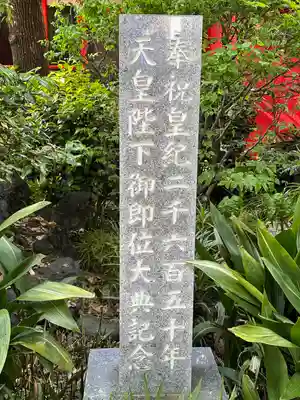 奉祝皇紀二千六百五十年
天皇陛下御即位大典記念